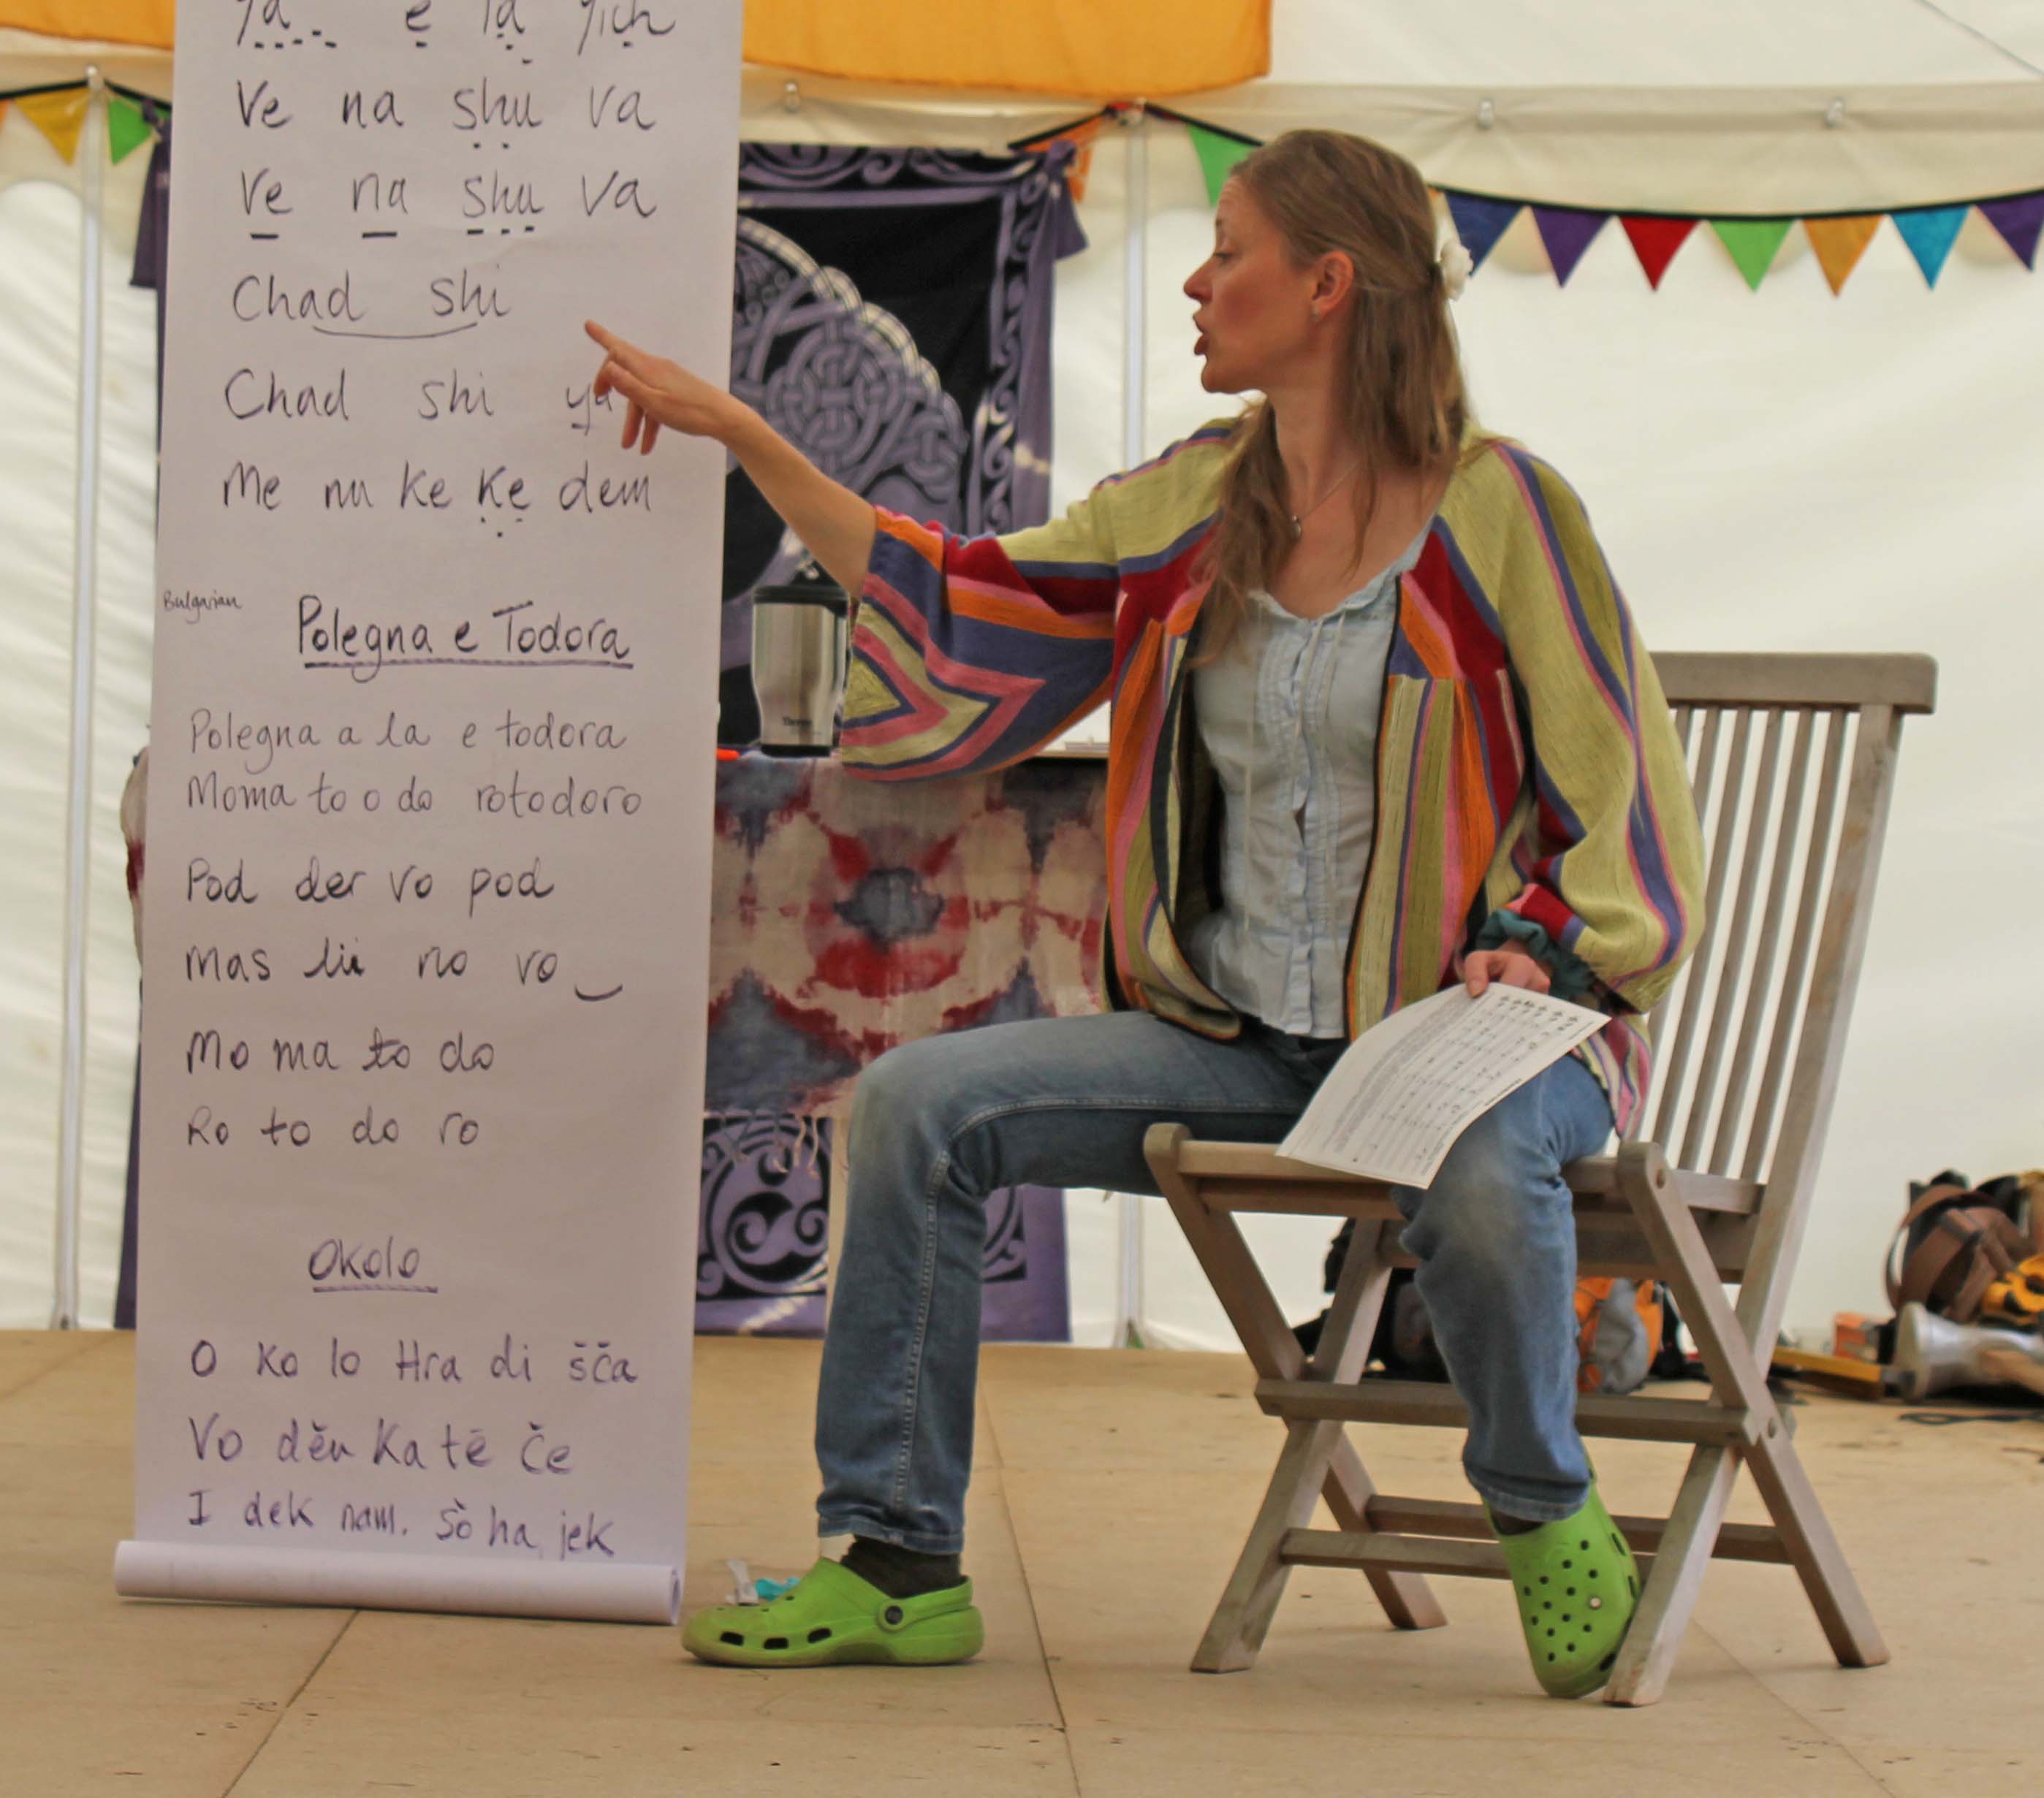 ya e la yich
Ve na shu va
Ve na shu va
Chad shi
Chad shi ya
Me nu ke ke dem
Bulgarian
Polegna e Todora
Polegna a la e todora
Moma to o do rotodoro
Pod der vo pod
mas lii no vo
Mo ma to do
Ro to do ro
Okolo
O ko lo Hra di šča
Vo děn ka tē če
I dek nam. sò ha jek